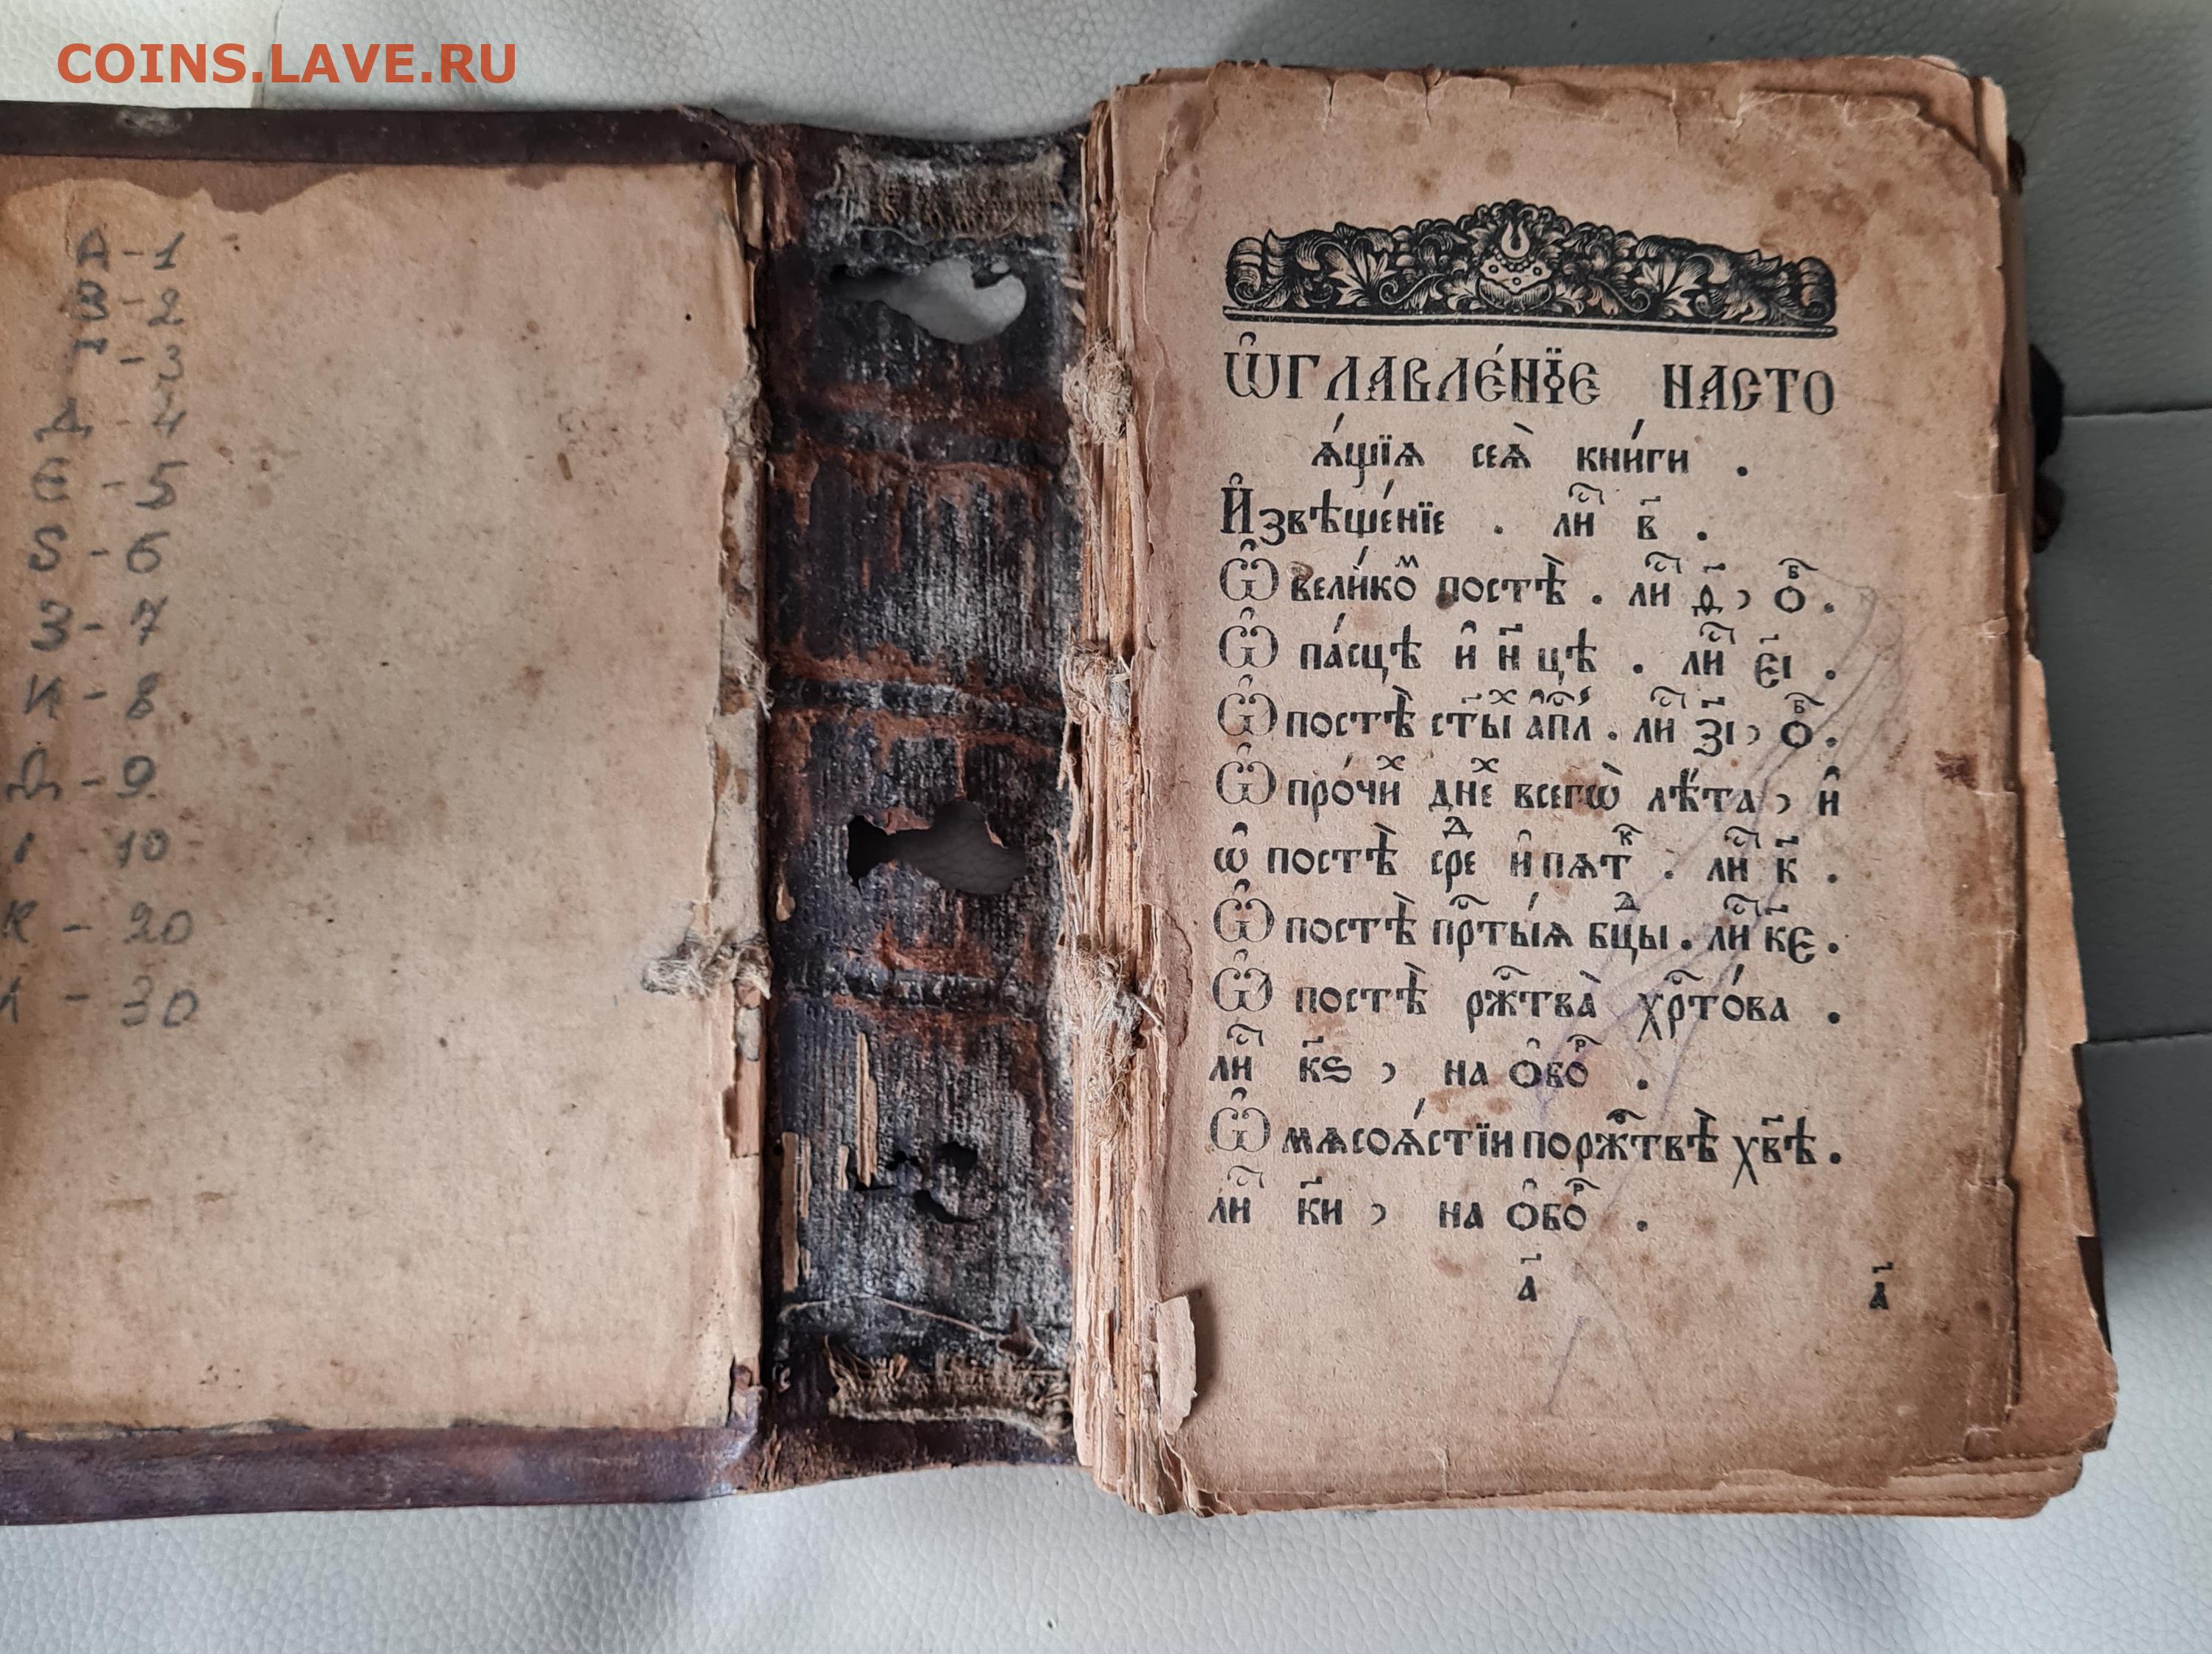 COINS.LAVE.RU
А - 1
В - 2
Г - 3
Д - 4
Е - 5
Ѕ - 6
З - 7
И - 8
- 9
І - 10
К - 20
Л - 30
Ѡ҆главле́нїе насто
ѧ́щїѧ сеѧ̀ кни́ги .
И҆звѣще́нїе . лиⷭ҇ в҃ .
Ѽ вели́коⷨ постѣ̀ . лиⷭ҇ д҃ , ѻⷠ҇ .
Ѽ па́сцѣ и҆ н҃цѣ . лиⷭ҇ є҃і .
Ѽ постѣ̀ ст҃ыⷯ а҆пⷭ҇л . лиⷭ҇ з҃і , ѻⷠ҇ .
Ѽ про́чиⷯ дн҃еⷯ всегѡ̀ лѣ́та , и҆
ѡ҆ постѣ̀ среⷣ и҆ пѧтⷦ҇ . лиⷭ҇ к҃ .
Ѽ постѣ̀ прⷭ҇ты́ѧ бцⷣы . лиⷭ҇ к҃є .
Ѽ постѣ̀ ржⷭ҇тва̀ хрⷭ҇то́ва .
лиⷭ҇ к҃ѕ , на ѻ҆боⷬ҇ .
Ѽ мѧсоѧ́стїи по ржⷭ҇твѣ̀ хв҃ѣ .
лиⷭ҇ к҃и , на ѻ҆боⷬ҇ .
а҃ а҃